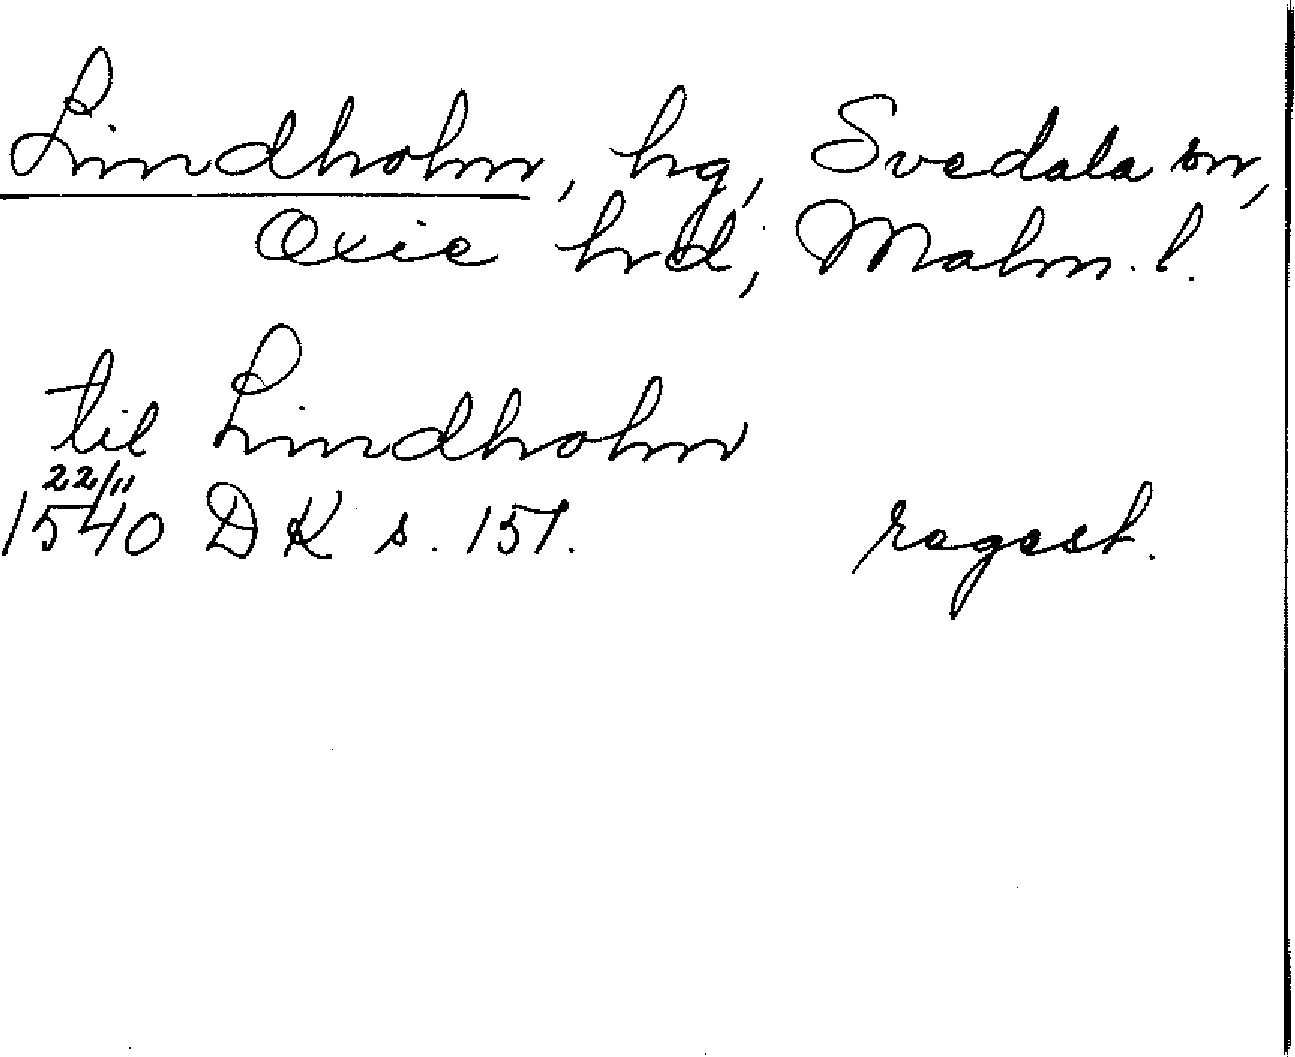 Lindholm, hg, Svedala sn,
Oxie hrd, Malm. l.
til Lindholm
22/11
1540 DK s. 151. regest.